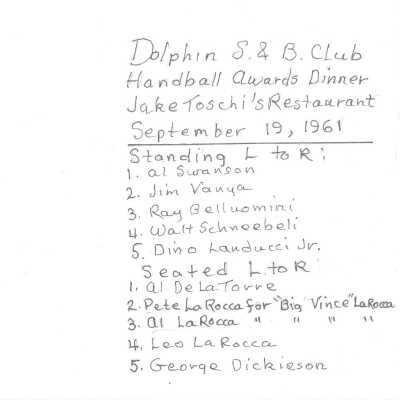 Dolphin S. & B. Club
Handball Awards Dinner
Jake Toschi's Restaurant
September 19, 1961
Standing L to R:
1. Al Swanson
2. Jim Vanya
3. Ray Belluomini
4. Walt Schneebeli
5. Dino Landucci Jr.
Seated L to R
1. Al De La Torre
2. Pete La Rocca for "Big Vince" La Rocca
3. Al LaRocca " " " "
4. Leo La Rocca
5. George Dickieson